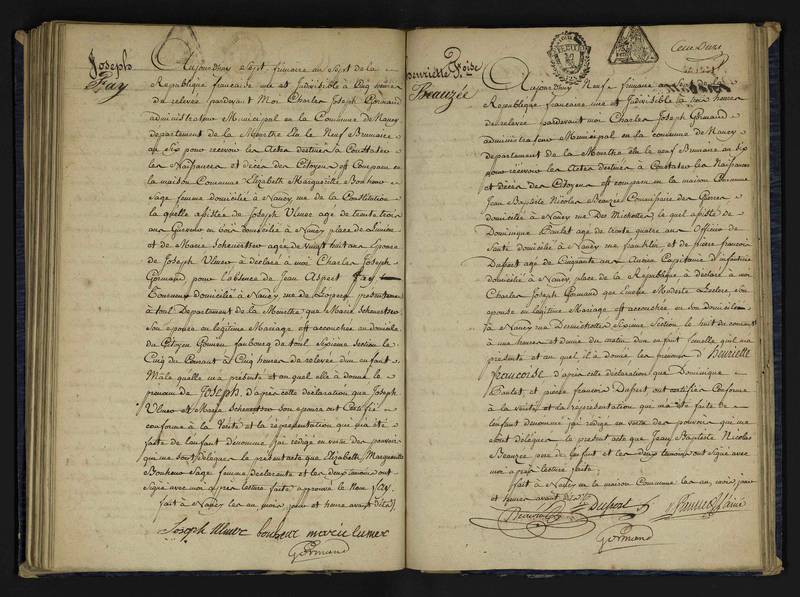 Joseph
Fay
Aujourd'huy Sept frimaire an Sept de la
Republique francaise une et Indivisible à Cinq heures
De relevee pardevant Moi Charles Joseph Gormand
administrateur Municipal en la Commune de Nancy
departement de la Meurthe Elu le Neuf Brumaire
an Six pour recevoir les Actes destinés à Constater
les Naissances et décès des Citoyens est Comparue en
la maison Commune Elizabeth Margueritte Bonheur
Sage femme domiciliée à Nancy rue de la Constitution
la quelle assistée de Joseph Ulmer age de trente trois
ans domicilié à Nancy place de
et de Marie agée de vingt huit ans Epouse
de Joseph Ulmer à declaré à moi Charles Joseph
Gormand, pour l'absence de Jean Aspert Fay
Tourneur domicilié à Nancy rue de présentement
à toul Departement de la Meurthe que Marie
Son épouse en légitime Mariage est accouchée au domicile
du Citoyen faubourg de toul Sixieme Section le
Cinq du Courant à Cinq heures de relevée d'un enfant
Mâle qu'elle m'a présenté et au quel elle à donné le
prenom de Joseph. D'après cette déclaration que Joseph
Ulmer et Marie son epouse ont Certifié
conforme à la Verité et la réprésentation qui m'a été
faite de l'enfant dénommé j'ai rédigé en vertu des pouvoirs
qui me sont délégués le présent acte que Elizabeth Marguerite
Bonheur Sage femme Déclarante et les deux temoins ont
Signé avec moi après lecture faite approuvé le Nom Fay.
fait à Nancy les an mois jour et heure avant dits
Joseph Ulmer bonheur marie lumer
Gormand
henriette Foise
Beauzée
Aujourd'huy Neuf frimaire an Sept de la
Republique francaise une et Indivisible à trois heures
de relevée pardevant moi Charles Joseph Gormand
administrateur Municipal en la commune de Nancy
departement de la Meurthe élu le neuf Brumaire an Six
pour recevoir les Actes destinés à Constater les Naissances
et décès des Citoyens est comparu en la maison Commune
Jean Baptiste Nicolas Beauzée Commissaire des Guerres
domicilié à Nancy rue Des Michottes le quel assisté de
Dominique age de trente quatre ans Officier de
Santé domicilié à Nancy rue franklin et de pierre francois
Dupret age de Cinquante ans Ancien Capitaine d'infanterie
domicilié à Nancy, place de la Republique à declaré à moi
Charles Joseph Gormand que Modeste Leclerc Son
epouse en légitime Mariage est accouchée en son domicile
à Nancy rue Des michottes Sixieme Section, le huit du courant
à une heure et demie du matin d'un enfant femelle qu'il m'a
présenté et au quel il à donné les prenoms d'henriette
francoise. d'après cette déclaration que Dominique
et pierre francois Dupret, ont certifié Conforme
à la verité et la réprésentation qui m'a été faite de
l'enfant dénommé j'ai rédigé en vertu des pouvoirs qui me
sont délégués, le présent acte que Jean Baptiste Nicolas
Beauzée pere de l'enfant et les deux temoins ont signé avec
moi après lecture faite.
fait à Nancy en la maison Commune les an, mois, jour
et heure avant dits
Beauzée Dupret
Gormand